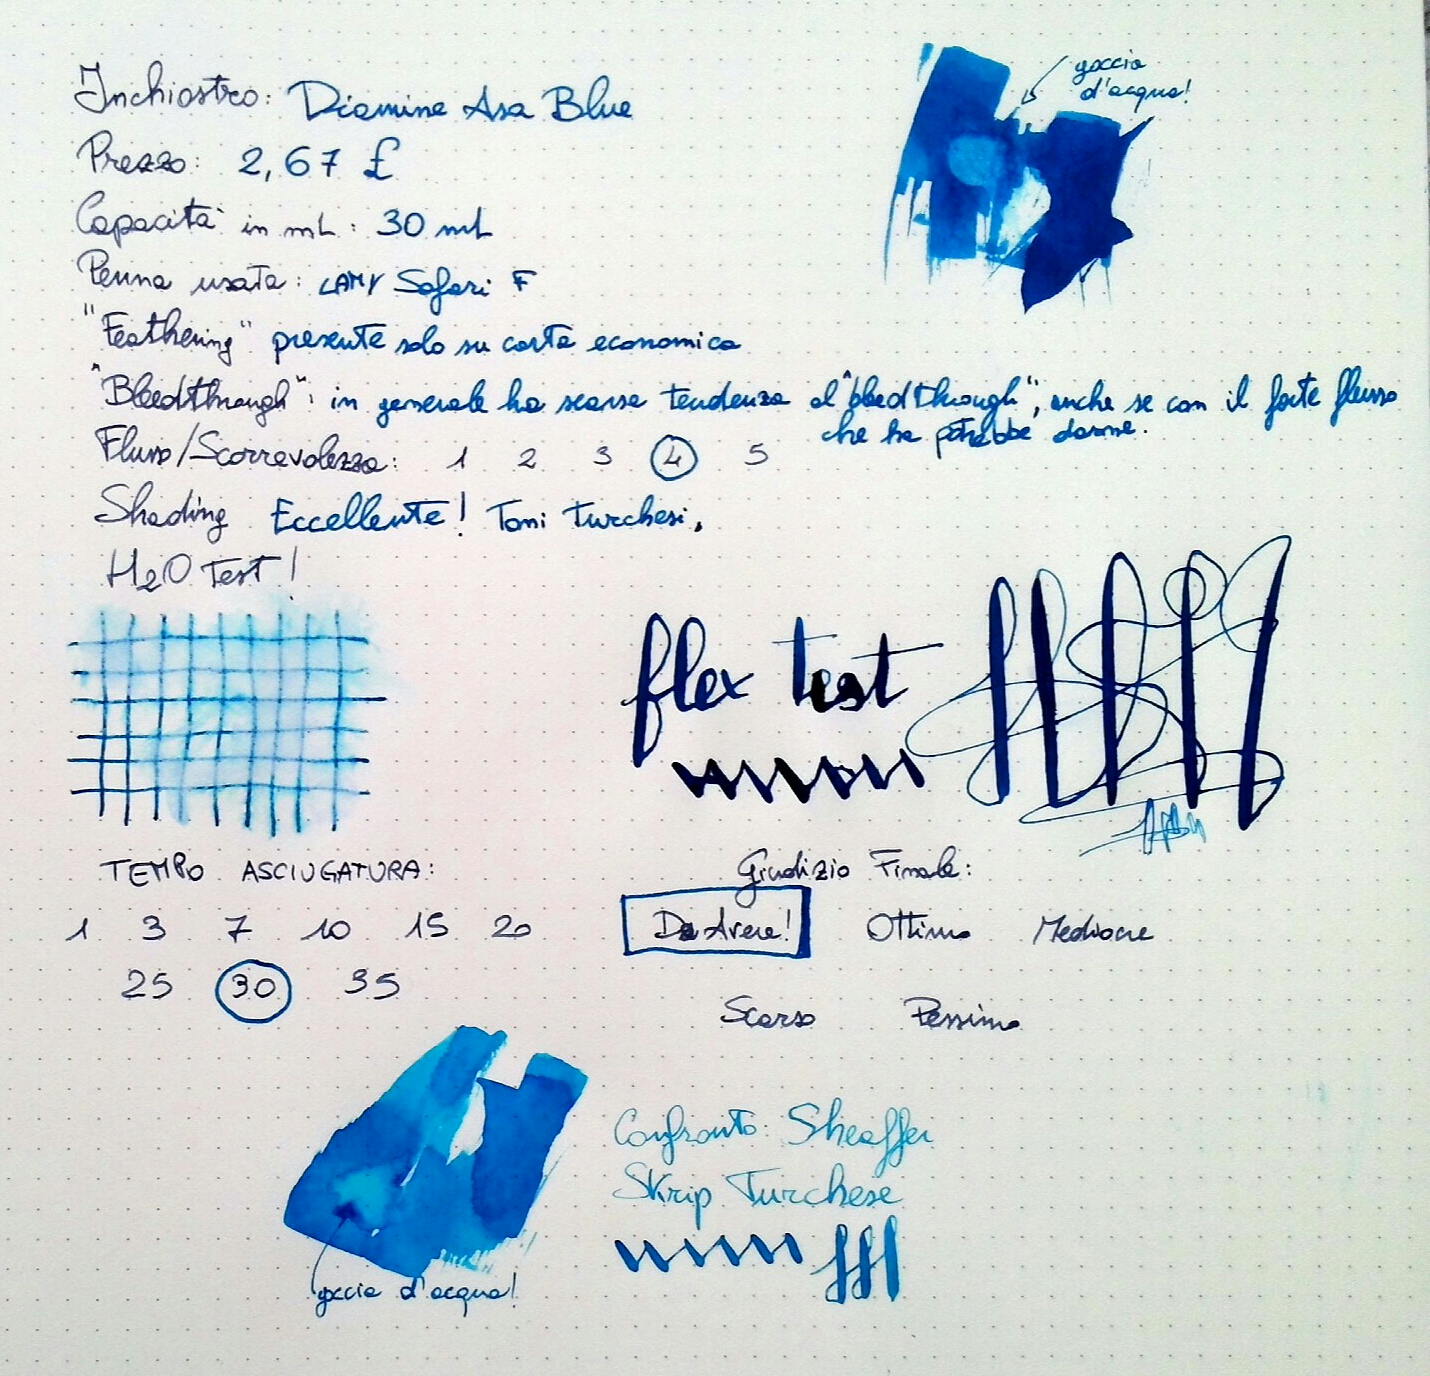 Inchiostro: Diamine Asa Blue
goccia
d'acqua!
Prezzo: 2,67 £
Capacità in mL: 30 mL
Penna usata: LAMY Safari F
"Feathering" presente solo su carta economica
"Bleedthrough": in generale ha scarsa tendenza al "bleedthrough", anche se con il forte flusso
che ha potrebbe darne.
Flusso/Scorrevolezza: 1 2 3 4 5
Shading Eccellente! Toni Turchesi.
H2O Test!
flex test
TEMPO ASCIUGATURA:
1 3 7 10 15 20
25 30 35
Giudizio Finale:
Da Avere! Ottimo Mediocre
Scarso Pessimo
goccia d'acqua!
Confronto: Sheaffer
Skrip Turchese